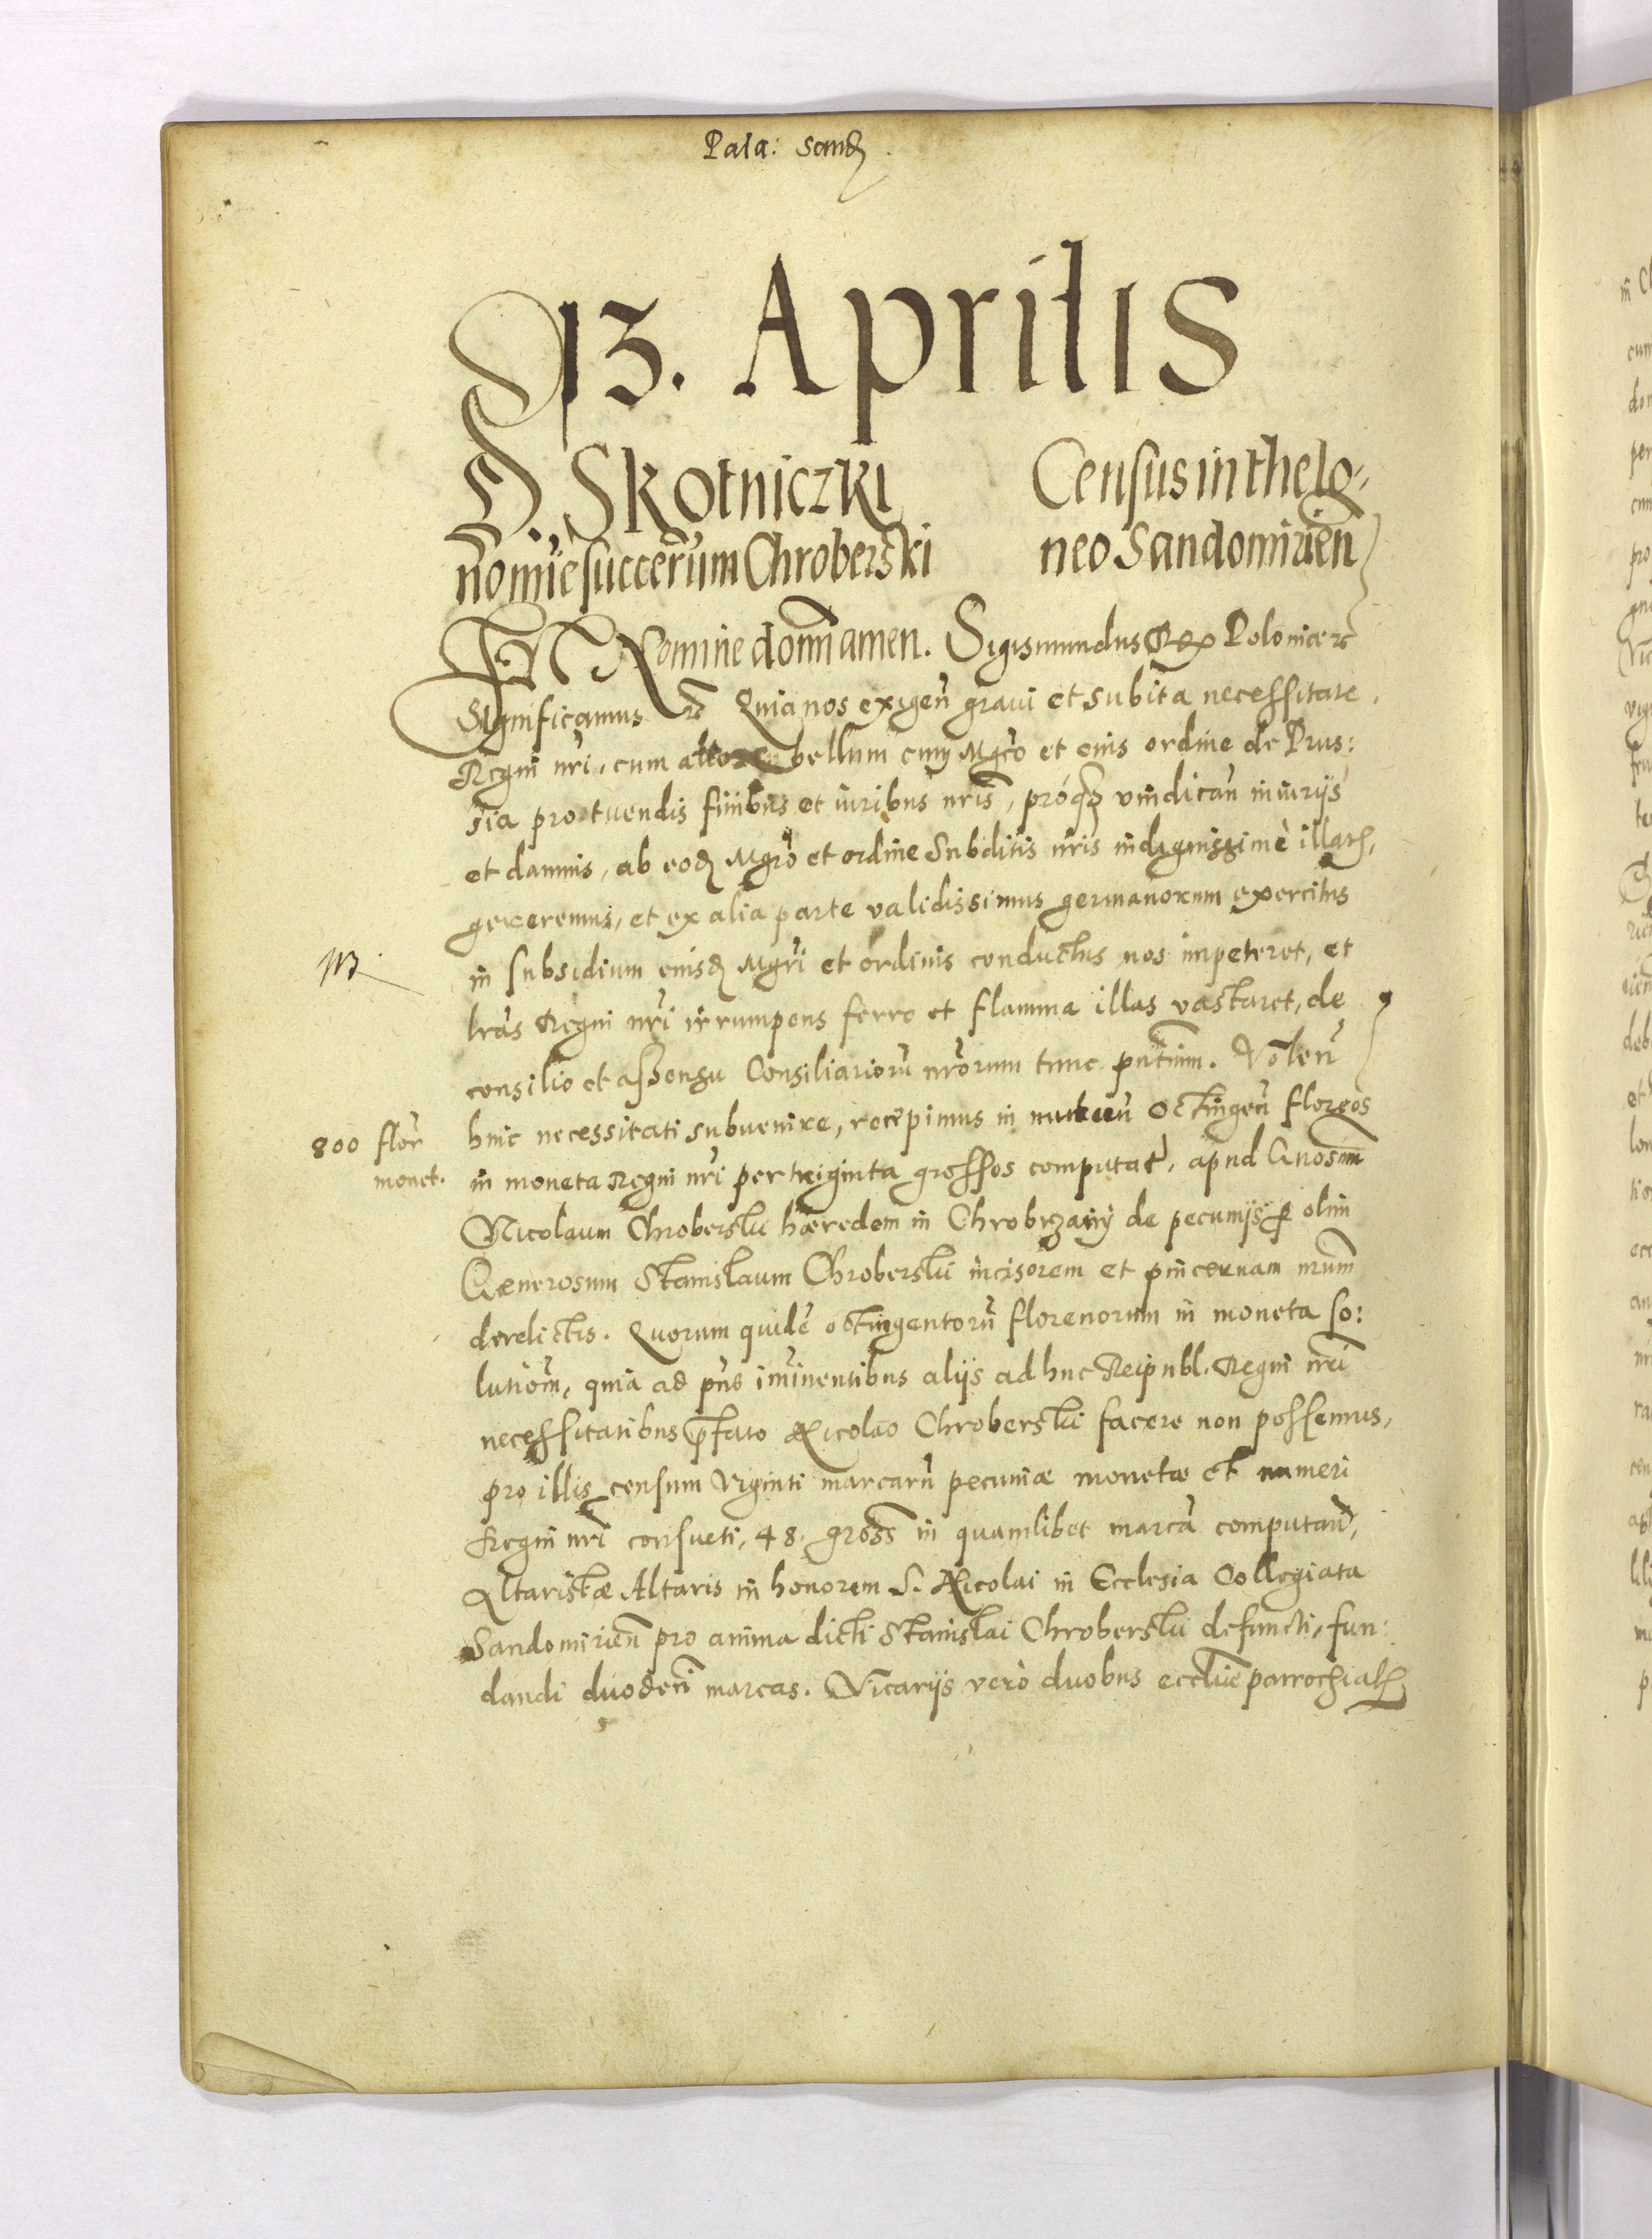 Pala: Sand
13. Aprilis
G. Skotniczki Census in thelo-
nomīe succerum Chroberski neo Sandomirien̄
IN Nomine domī amen. Sigismundus Rex Poloniae
Significamus Quia nos exigen̄ graui et subita necessitate
Regni nr̄i, cum bellum cum Mgr̄o et eius ordine de Prus:
sia pro tuendis finibus et iuribus nr̄is, proq3 vindican̄ iniurijs
et damnis, ab eod Mgr̄o et ordine Subditis nr̄is indignissimè illatis,
gereremus, et ex alia parte validissimus germanorum exercitus
in subsidium eiusd Mgr̄i et ordinis conductus nos impeteret, et
tr̄as Regni nr̄i irrumpens ferro et flamma illas vastaret, de
consilio et assensu Consiliariorū nr̄orum tunc pn̄tium. Volen̄
800 flor̄ huic necessitati subuenire, recepimus in mutuū Octingen̄ florēos
monet. in moneta Regni nr̄i per triginta grossos computat, apud Gnōsum
Nicolaum Chroberski haeredem in Chrobrzany de pecunijs p olim
Generosum Stanislaum Chroberski incisorem et pincernam nr̄um
derelictis. Quorum quidē octingentorū florenorum in moneta so:
lutiōm, quia ad pn̄s im̄inentibus alijs ad huc Reipubl. Regni nr̄i
necessitatibus p̄fato Nicolao Chroberski facere non possemus,
pro illis censum viginti marcarū pecuniae monetae et numeri
Regni nr̄i consueti, 48. gross in quamlibet marcā computan̄,
Altaristae Altaris in honorem S. Nicolai in Ecclesia Collegiata
Sandomirien̄ pro anima dicti Stanislai Chroberski defuncti, fun:
dandi duodeci marcas. Vicarijs verò duobus eccliae parrochialis